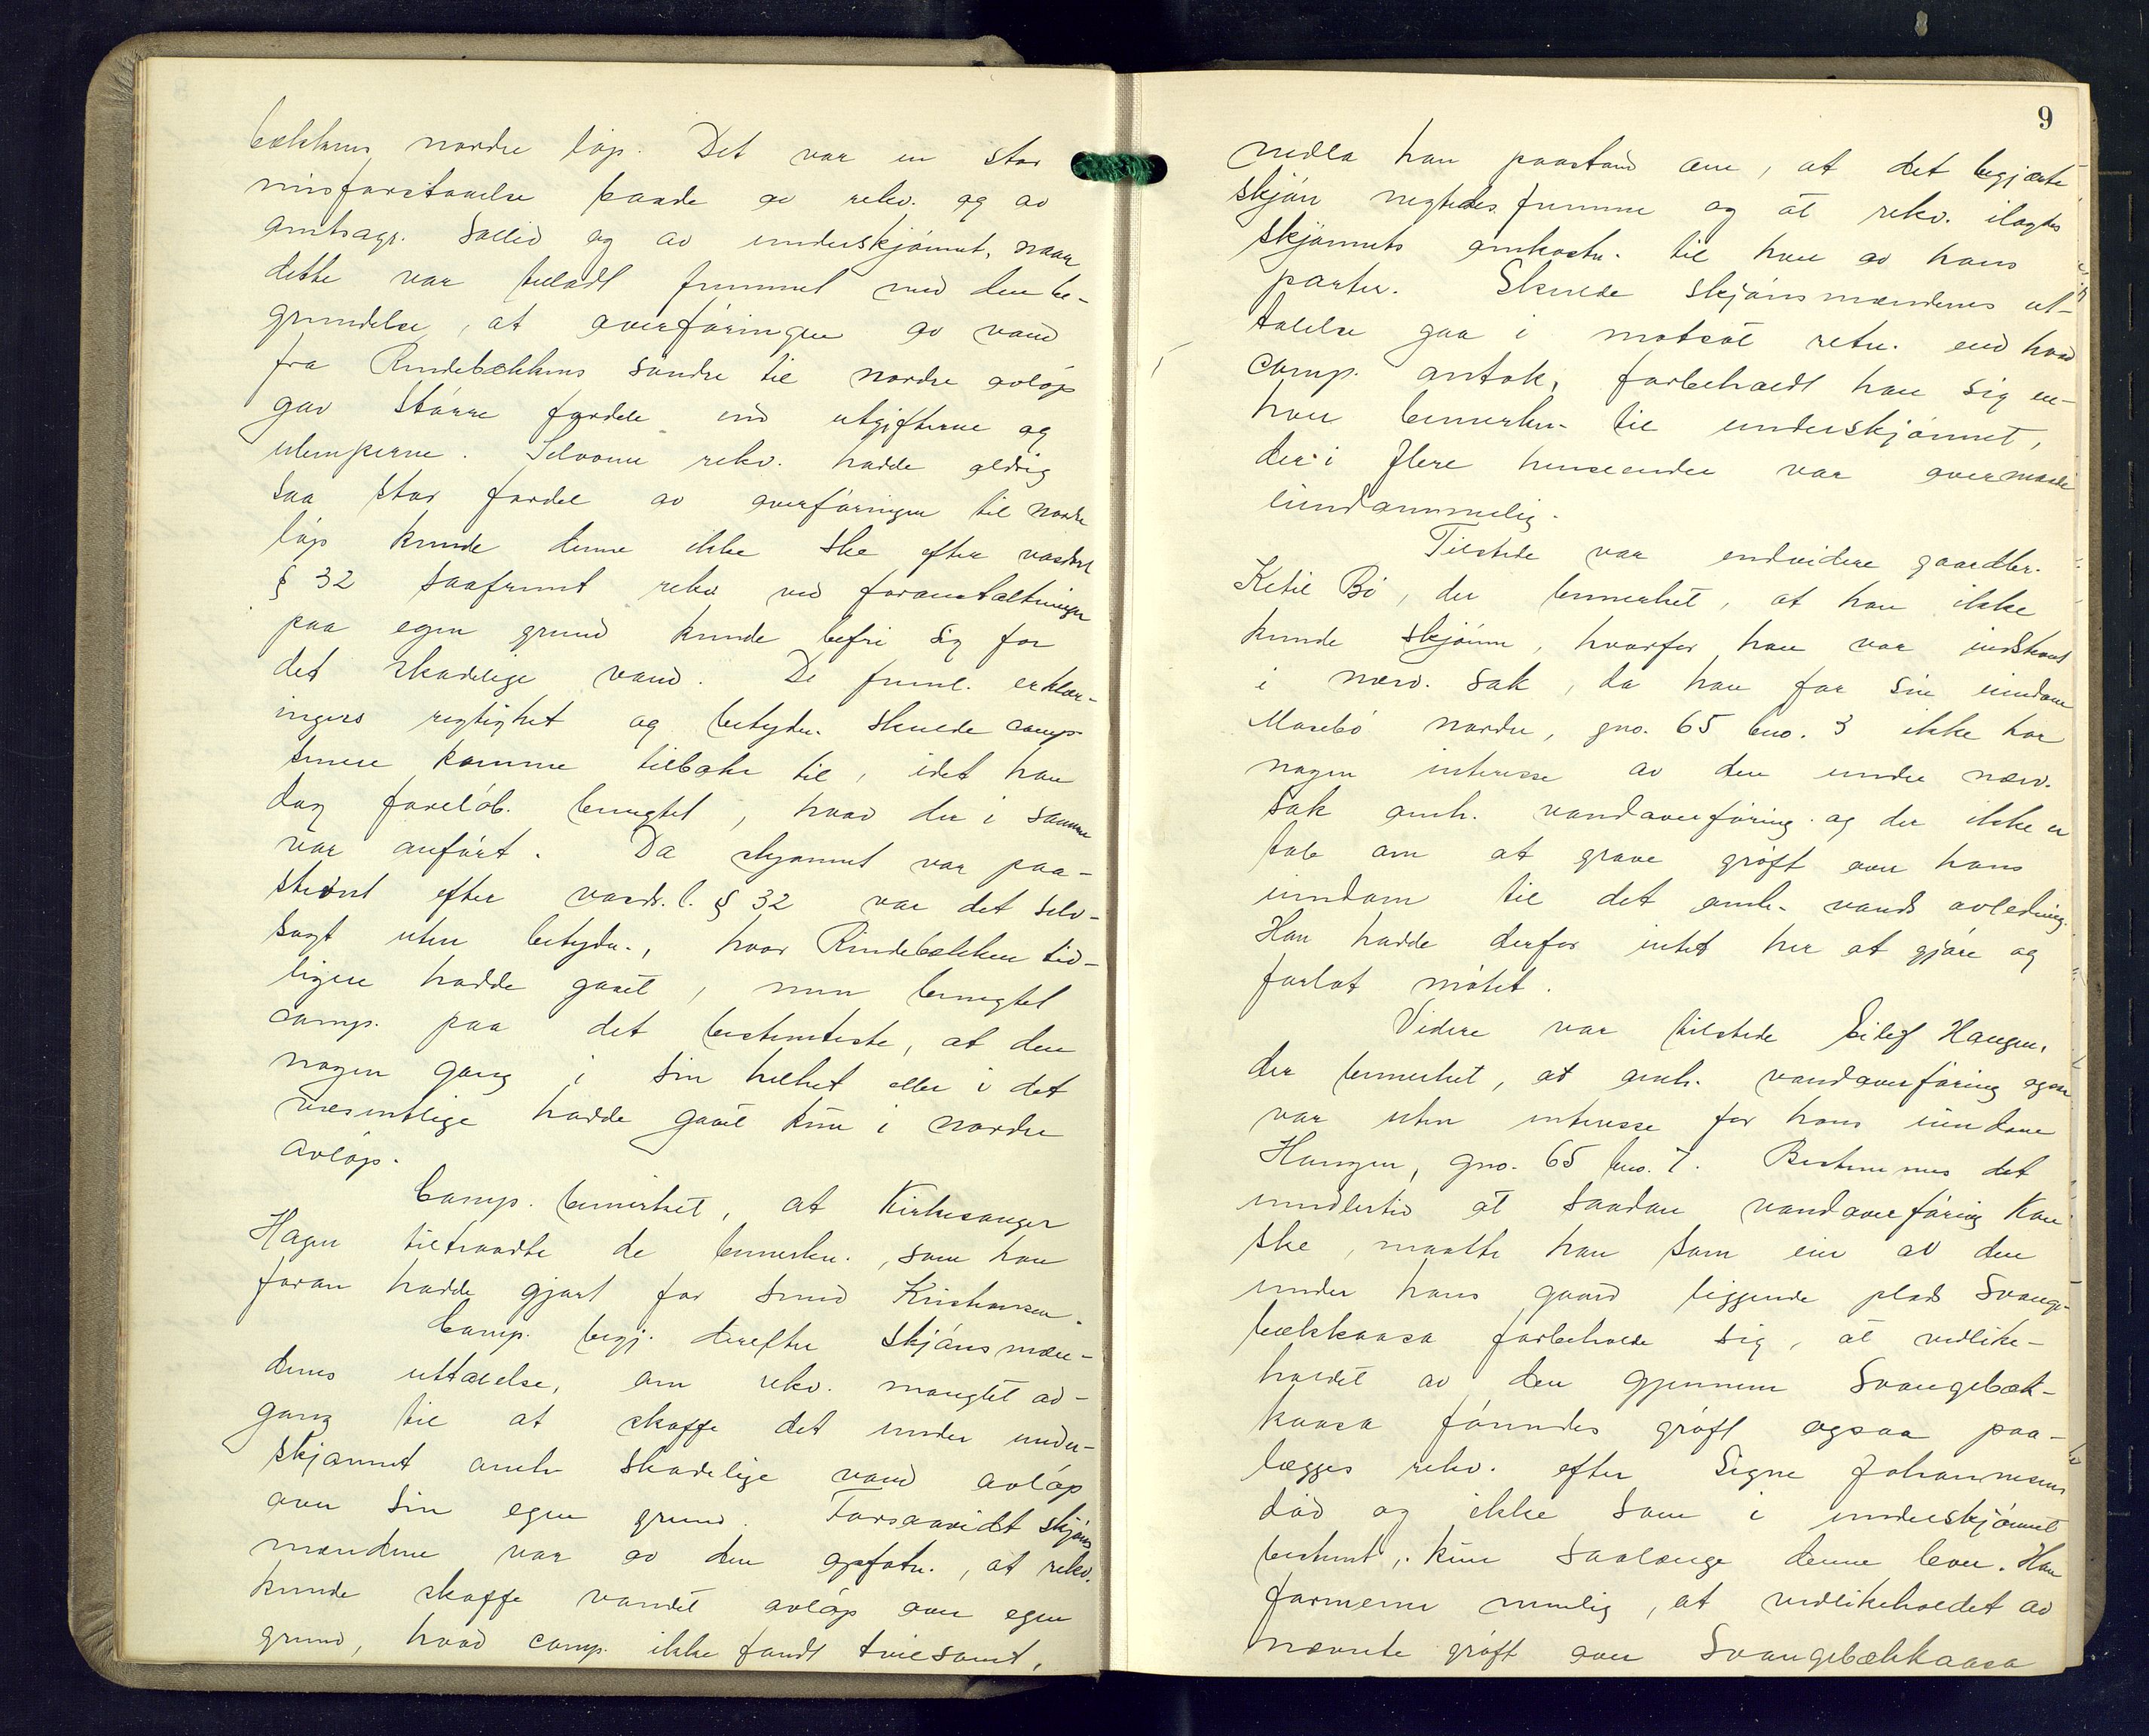 bækkens nordre løp. Det var en stor
misforstaaelse baade av rekv. og av
amtsagr. Sollid og av underskjønnet, naar
dette var tilladt fremmet med den be-
grundelse, at overføringen av vand
fra Rindebækkens søndre til nordre avløp
gav større fordele end utgifterne og
ulemperne. Selvom rekv. hadde aldrig
saa stor fordel av overføringen til nordre
løp kunde denne ikke ske efter vasdrl
§ 32 saafremt rekv ved foranstaltninger
paa egen grund kunde befri sig for
det skadelige vand. De freml. erklær-
ingers rigtighet og betydn. skulde comp
senere komme tilbake til, idet han
dog foreløb. benegtet, hvad der i samme
var anført. Da skjønnet var paa-
stevnt efter vasdr. l. § 32 var det selv-
sagt uten betydn., hvor Rindebækken tid-
ligere hadde gaaet, men benegtet
comp. paa det bestemteste, at den
nogen gang i sin helhet eller i det
væsentlige hadde gaaet kun i nordre
avløp.
Comp. bemerket, at Kirkesanger
Hagen tiltraadte de bemerkn., som han
foran hadde gjort for Smed Kristiansen.
Comp. begj. derefter skjønsmæn-
denes uttalelse, om rekv. manglet ad-
gang til at skaffe det under under-
skjønnet omh. skadelige vand avløp
over sin egen grund. Forsaavidt skjøns
mændene var av den opfatn., at rekv.
kunde skaffe vandet avløp over egen
grund, hvad comp. ikke fandt tvilsomt,
9
nedla han paastand om, at det begjærte
skjøn negtedes fremme og at rekv. ilagdes
skjønnets omkostn. til han og hans
parter. Skulde skjønsmændenes ut-
talelse gaa i motsat retn. end hvad
comp. antok, forbeholdt han sig en-
hver bemerkn. til underskjønnet,
der i flere henseender var overmaade
eiendommelig.
Tilstede var endvidere gaardbr.
Ketil Bø, der bemerket, at han ikke
kunde skjønne, hvorfor han var indstevnt
i nærv. sak, da han for sin eiendom
Mosebø nordre, gno. 65 bno. 3 ikke har
nogen interesse av den under nærv.
sak omh. vandoverføring og der ikke er
tale om at grave grøft over hans
eiendom til det omh. vands avledning.
Han hadde derfor intet her at gjøre og
forlot møtet.
Videre var tilstede Eilef Haugen,
der bemerket, at omh. vandoverføring ogsaa
var uten interesse for hans eiendom
Haugen, gno. 65 bno. 7. Bestemmes det
imidlertid at saadan vandoverføring kan
ske, maatte han som eier av den
under hans gaard liggende plads Svange-
bækkaasa forbeholde sig, at vedlike-
holdet av den gjennem Svangebæk-
kaasa førendes grøft ogsaa paa-
lægges rekv. efter Signe Johannesens
død og ikke som i underskjønnet
bestemt, kun saalænge denne lever. Han
formener nemlig, at vedlikeholdet av
nævnte grøft over Svangebækkaasa